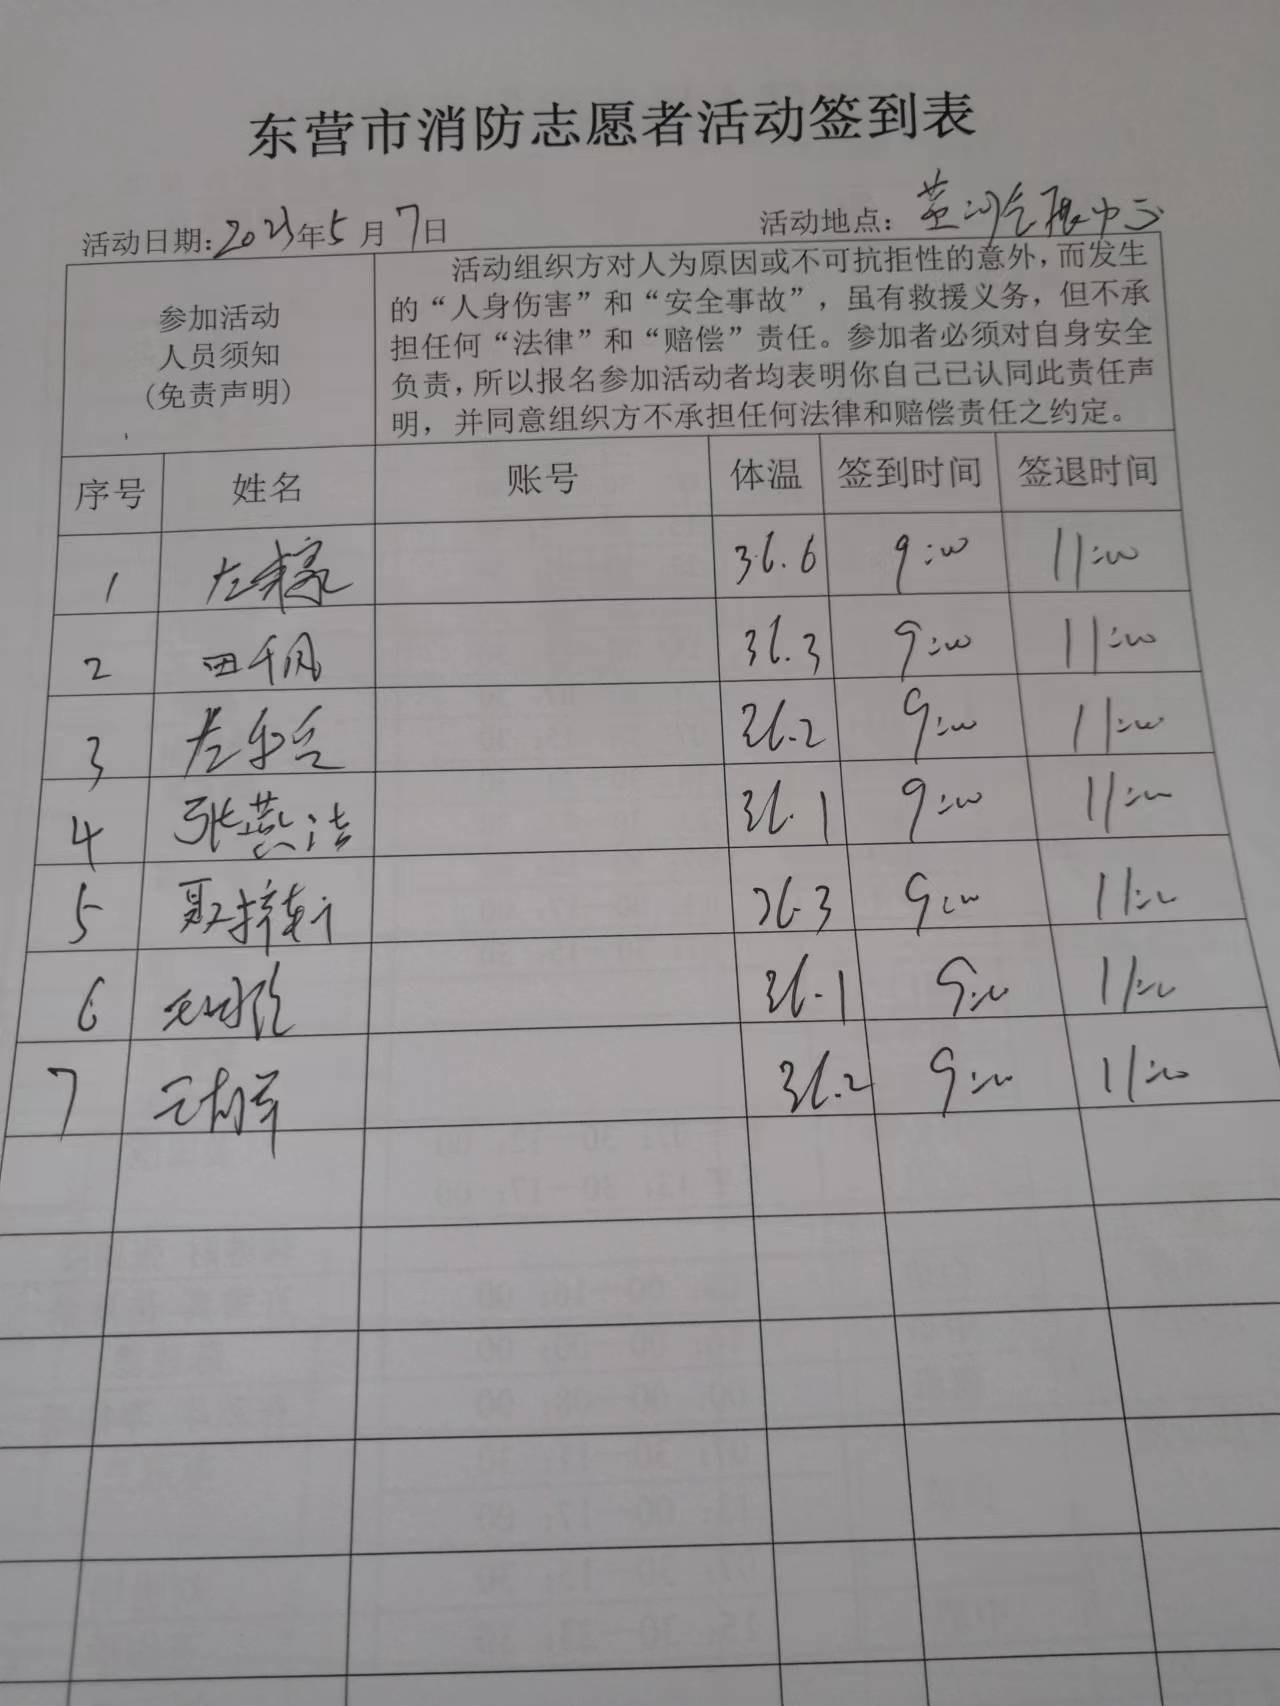 东营市消防志愿者活动签到表
活动日期:2023年5月7日 活动地点：黄河会展中心
参加活动
人员须知
(免责声明)
活动组织方对人为原因或不可抗拒性的意外，而发生
的“人身伤害”和“安全事故”，虽有救援义务，但不承
担任何“法律”和“赔偿”责任。参加者必须对自身安全
负责，所以报名参加活动者均表明你自己已认同此责任声
明，并同意组织方不承担任何法律和赔偿责任之约定。
序号 姓名 账号 体温 签到时间 签退时间
1 36.6 9:00 11:00
2 田千凤 36.3 9:00 11:00
3 36.2 9:00 11:00
4 张燕洁 36.1 9:00 11:00
5 聂梓轩 36.3 9:00 11:00
6 36.1 9:00 11:00
7 36.2 9:00 11:00